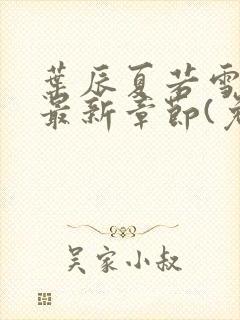 葉辰夏若雪
最新章節(
吴家小叔